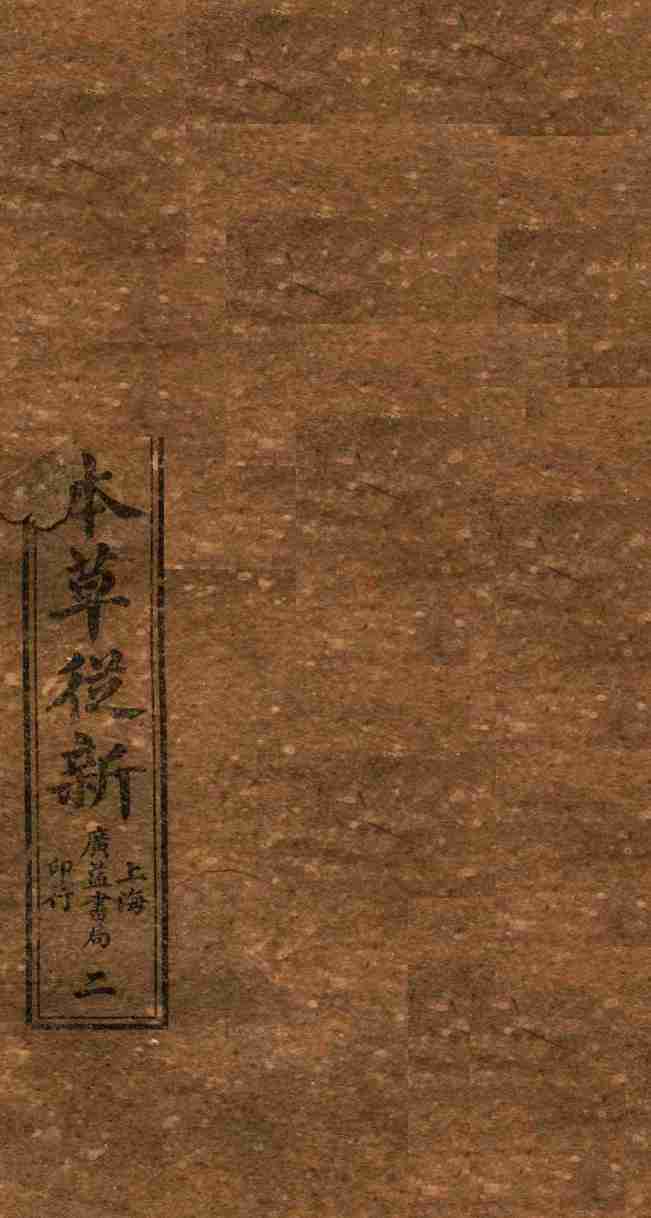 本草從新
上海
廣益書局
印行
二